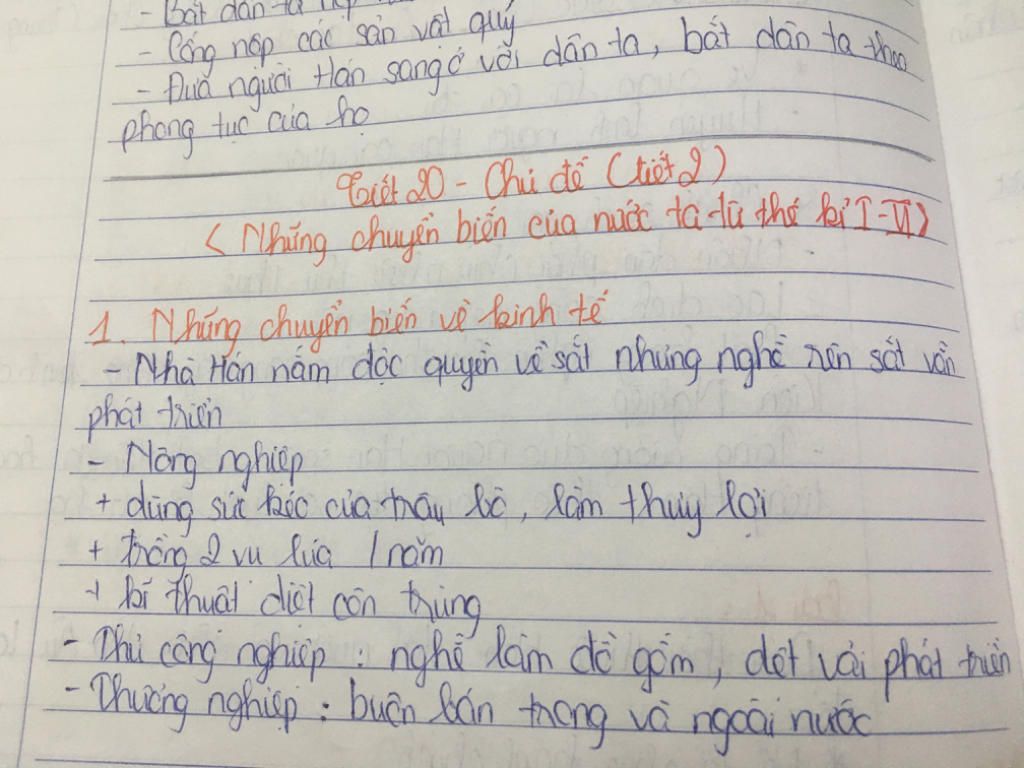 - Bắt dân ta nộp
- Cống nộp các sản vật quý
- Đưa người Hán sang ở với dân ta, bắt dân ta theo
phong tục của họ
Tiết 20 - Chủ đề (tiết 2)
< Những chuyển biến của nước ta từ thế kỉ I - VI )
1. Những chuyển biến về kinh tế
- Nhà Hán nắm độc quyền về sắt nhưng nghề rèn sắt vẫn
phát triển
- Nông nghiệp
+ dùng sức kéo của trâu bò, làm thuỷ lợi
+ trồng 2 vụ lúa 1 năm
+ kĩ thuật diệt côn trùng
- Thủ công nghiệp : nghề làm đồ gốm, dệt vải phát triển
- Thương nghiệp : buôn bán trong và ngoài nước